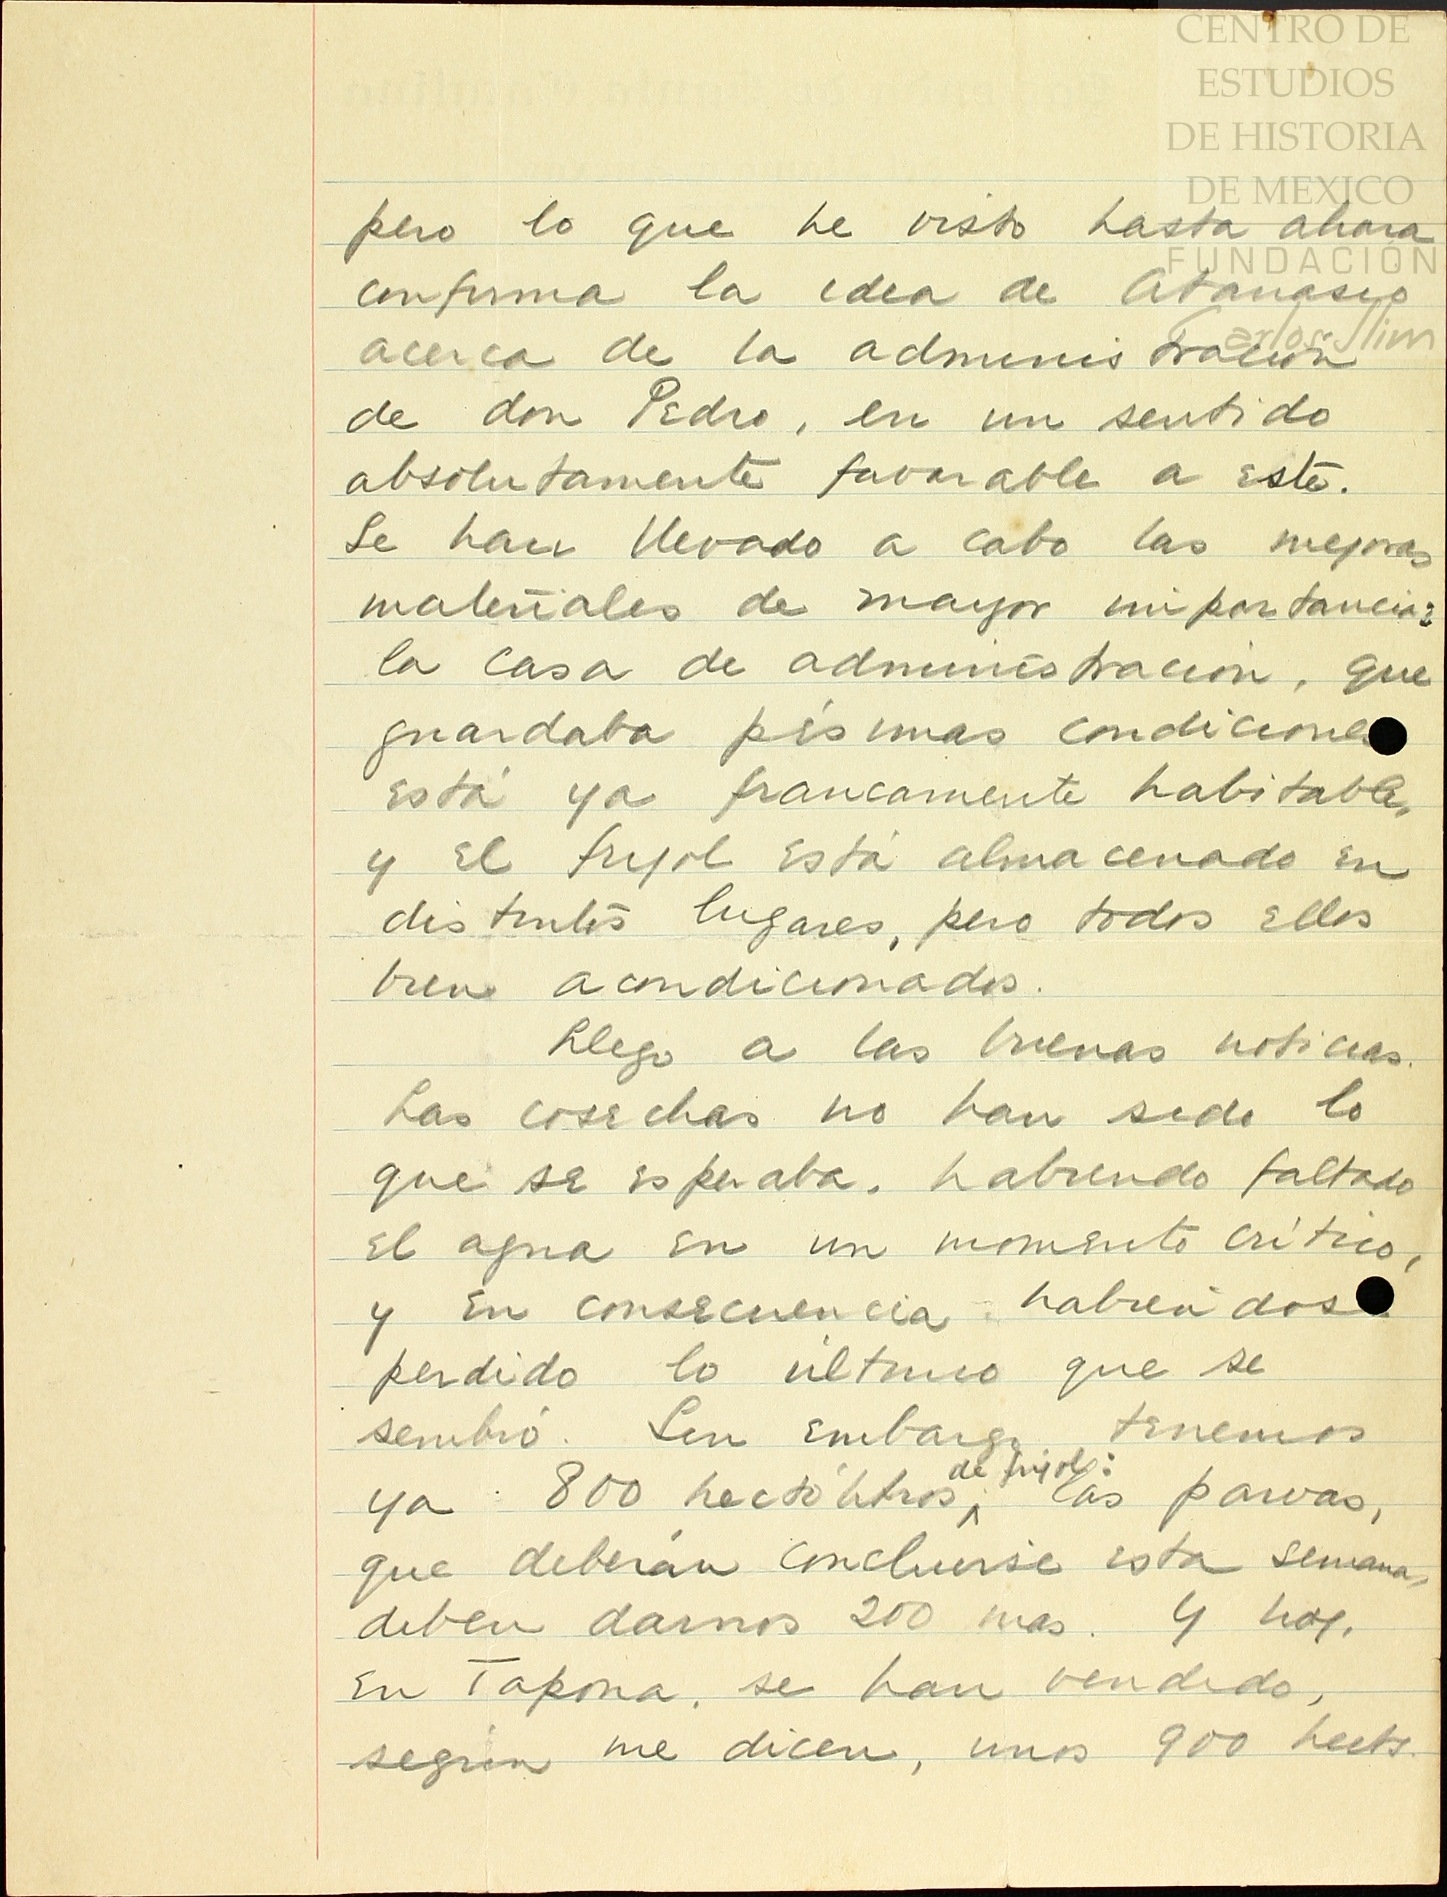 CENTRO DE
ESTUDIOS
DE HISTORIA
DE MEXICO
FUNDACIÓN
Carlos Slim
pero lo que he visto hasta ahora
confirma la idea de Atanasio
acerca de la administración
de don Pedro, en un sentido
absolutamente favorable a este.
Se han llevado a cabo las mejoras
materiales de mayor importancia:
la casa de administración, que
guardaba pésimas condiciones
está ya francamente habitable,
y el frijol está almacenado en
distintos lugares, pero todos ellos
bien acondicionados.
Llego a las buenas noticias.
Las cosechas no han sido lo
que se esperaba, habiendo faltado
el agua en un momento crítico,
y en consecuencia habiéndose
perdido lo último que se
sembró. Sin embargo tenemos
ya 800 hectólitros de frijol: las parvas,
que deberán concluirse esta semana,
deben darnos 200 mas. Y hoy,
en Tapona, se han vendido,
según me dicen, unos 900 hects.